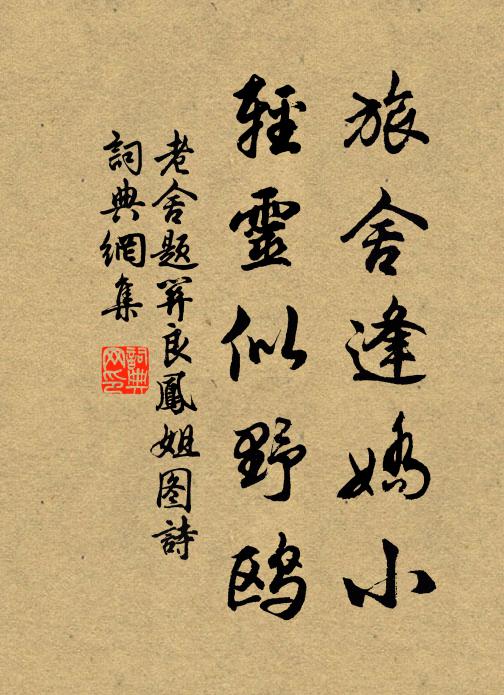 旅舍逢嬌小
輕靈似野鸥
老舍题羿良鳳姐图詩
詞典網集
詞典
网印